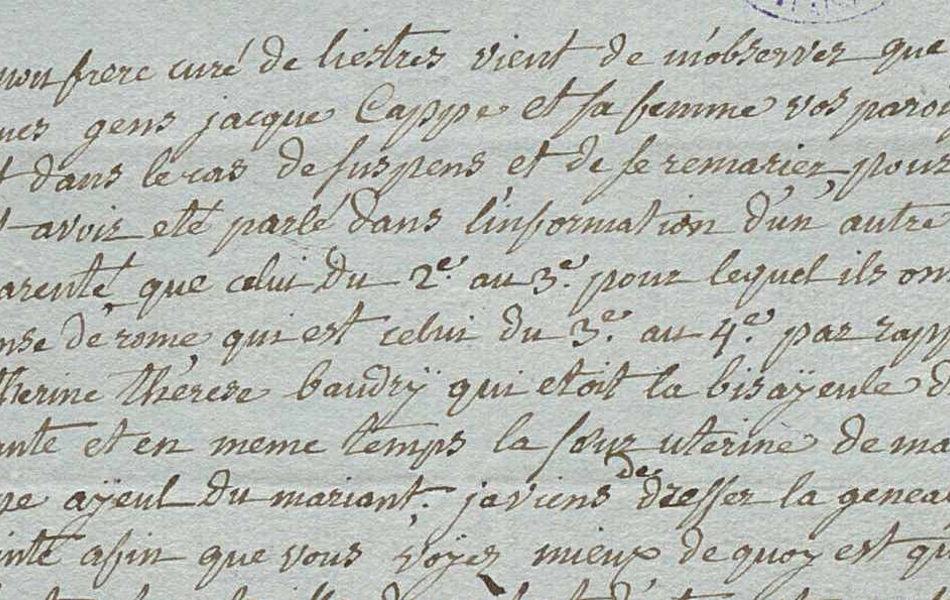 mon frere curé de liestres vient de m'observer que
ues gens jacque Cappe et sa femme vos paro
t dans le cas de suspens et de se remarier, pour
t avoir eté parlé dans l'information d'un autre
arenté que celui du 2e. au 3e. pour lequel ils on
nse de rome qui est celui du 3e. au 4e. par rapp
therine thérese baudrÿ qui etoit la bisaÿeule d
ante et en meme temps la sœur uterine de ma
ne aÿeul du mariant. je viens de dresser la genea
inte afin que vous voÿez mieux de quoy est qu